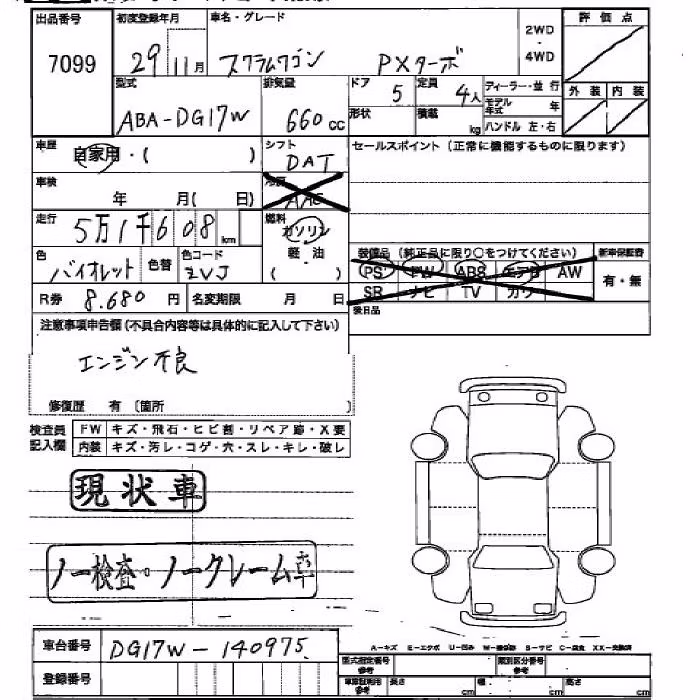 出品番号 初度登録年月 車名・グレード 評価点
7099 29 11月 スクラムワゴン PXターボ 2WD・4WD
型式 排気量 ドア 定員 ディーラー・並行 外装 内装
ABA-DG17W 660cc 5 4人 モデル年式 年
形状 積載 kg ハンドル 左・右
車歴 自家用・( ) シフト DAT セールスポイント (正常に機能するものに限ります)
車検 年 月( 日) 冷房 AAC
走行 5万1千608km 燃料 ガソリン
軽・油
( )
色 バイオレット 色替 色コード ZVJ
装備品 (純正品に限り○をつけてください) 新車保証書
PS PW ABS エアB AW 有・無
SR ナビ TV カワ
R券 8.680円 名変期限 月 日
後日品
注意事項申告欄 (不具合内容等は具体的に記入して下さい)
エンジン不良
修復歴 有 〔箇所 〕
検査員記入欄 FW キズ・飛石・ヒビ割・リペア跡・X要
内装 キズ・汚レ・コゲ・穴・スレ・キレ・破レ
現状車
ノー検査・ノークレーム車
車台番号 DG17W-140975
A-キズ E-エクボ U-凹み S-サビ C-腐食 XX-交換済
登録番号 型式指定番号 参考 類別区分番号 参考
車庫証明用 参考 長さ cm 幅 cm 高さ cm